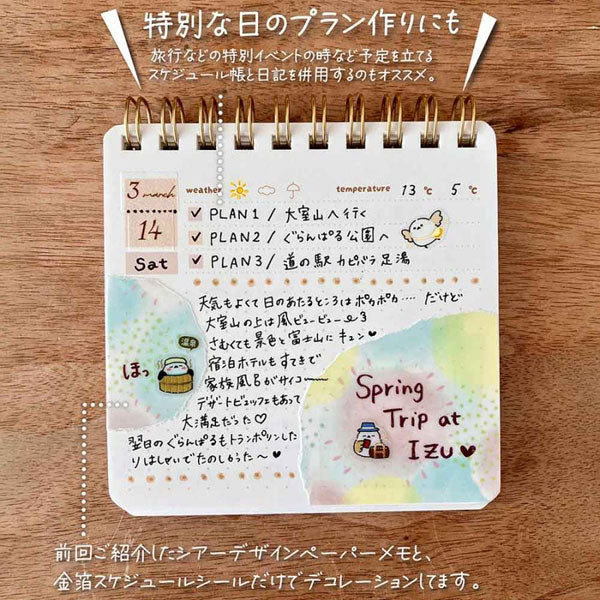 特別な日のプラン作りにも
旅行などの特別イベントの時など予定を立てる
スケジュール帳と日記を併用するのもオススメ。
3 march
weather
temperature 13 ℃ 5 ℃
14
Sat
✓ PLAN 1 / 大室山へ行く
✓ PLAN 2 / ぐらんぱる公園へ
✓ PLAN 3 / 道の駅 カピバラ足湯
天気もよくて日のあたるところはポカポカ…. だけど
大室山の上は風ビュービュー
さむくても景色と富士山にキュン♥
宿泊ホテルもすてきで
家族風呂がサイコー
デザートビュッフェもあって
大満足だった♡
翌日のぐらんぱるもトランポリンした
りはしゃいでたのしかった〜♥
温泉
ほっ
Spring
Trip at
IZU ♥
前回ご紹介したシアーデザインペーパーメモと、
金箔スケジュールシールだけでデコレーションしてます。